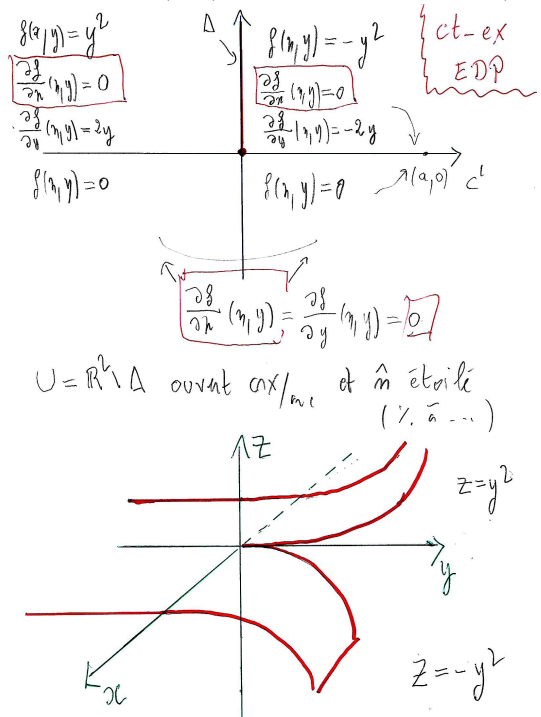 f(x,y) = y²
∂f/∂x (x,y) = 0
∂f/∂y (x,y) = 2y
f(x,y) = 0
Δ
f(x,y) = -y²
∂f/∂x (x,y) = 0
∂f/∂y (x,y) = -2y
f(x,y) = 0
(a,0)
C¹
ct-ex
EDP
∂f/∂x (x,y) = ∂f/∂y (x,y) = 0
U = ℝ²\Δ ouvert cnx/arc et m̂ étoilé
(% à ...)
Z
z = y²
y
x
z = -y²